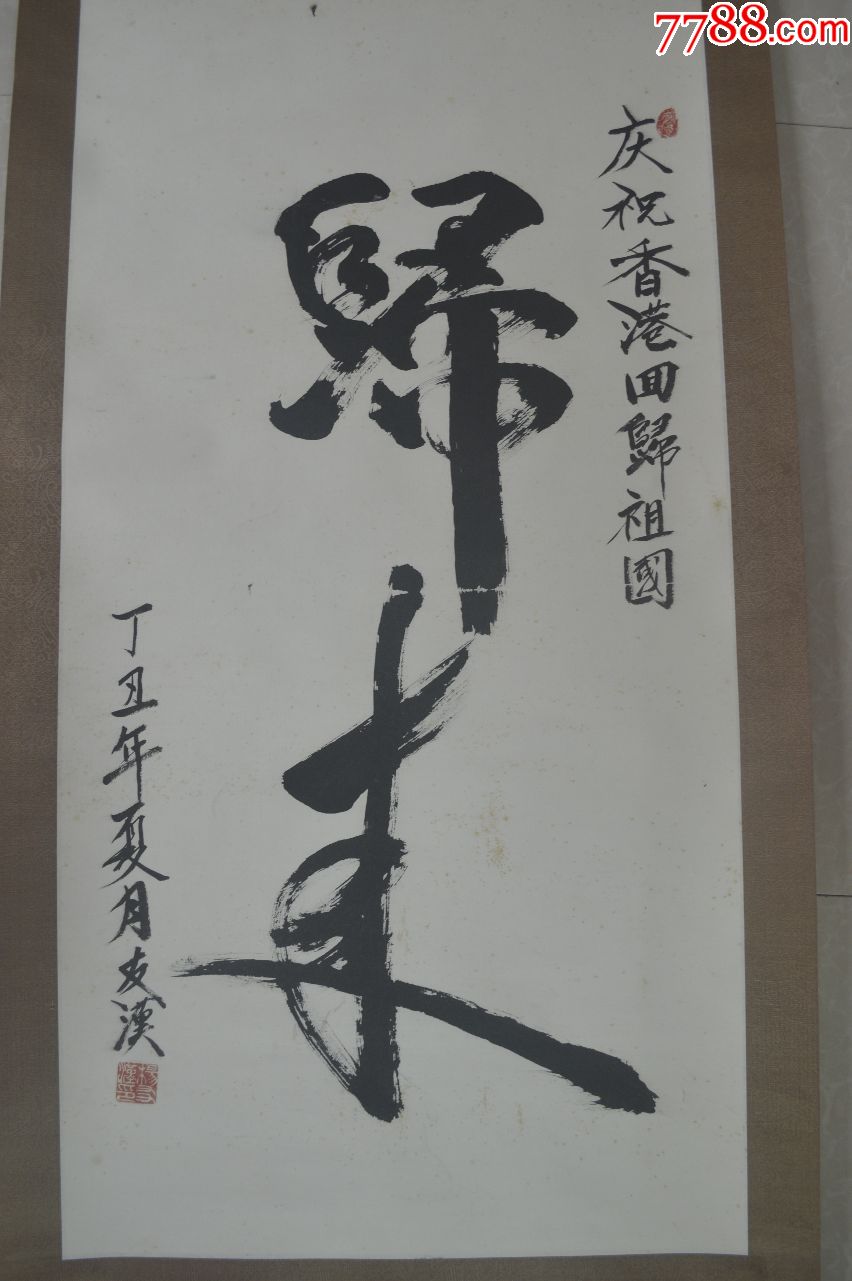 7788.com
庆祝香港回歸祖國
歸来
丁丑年夏月友漢